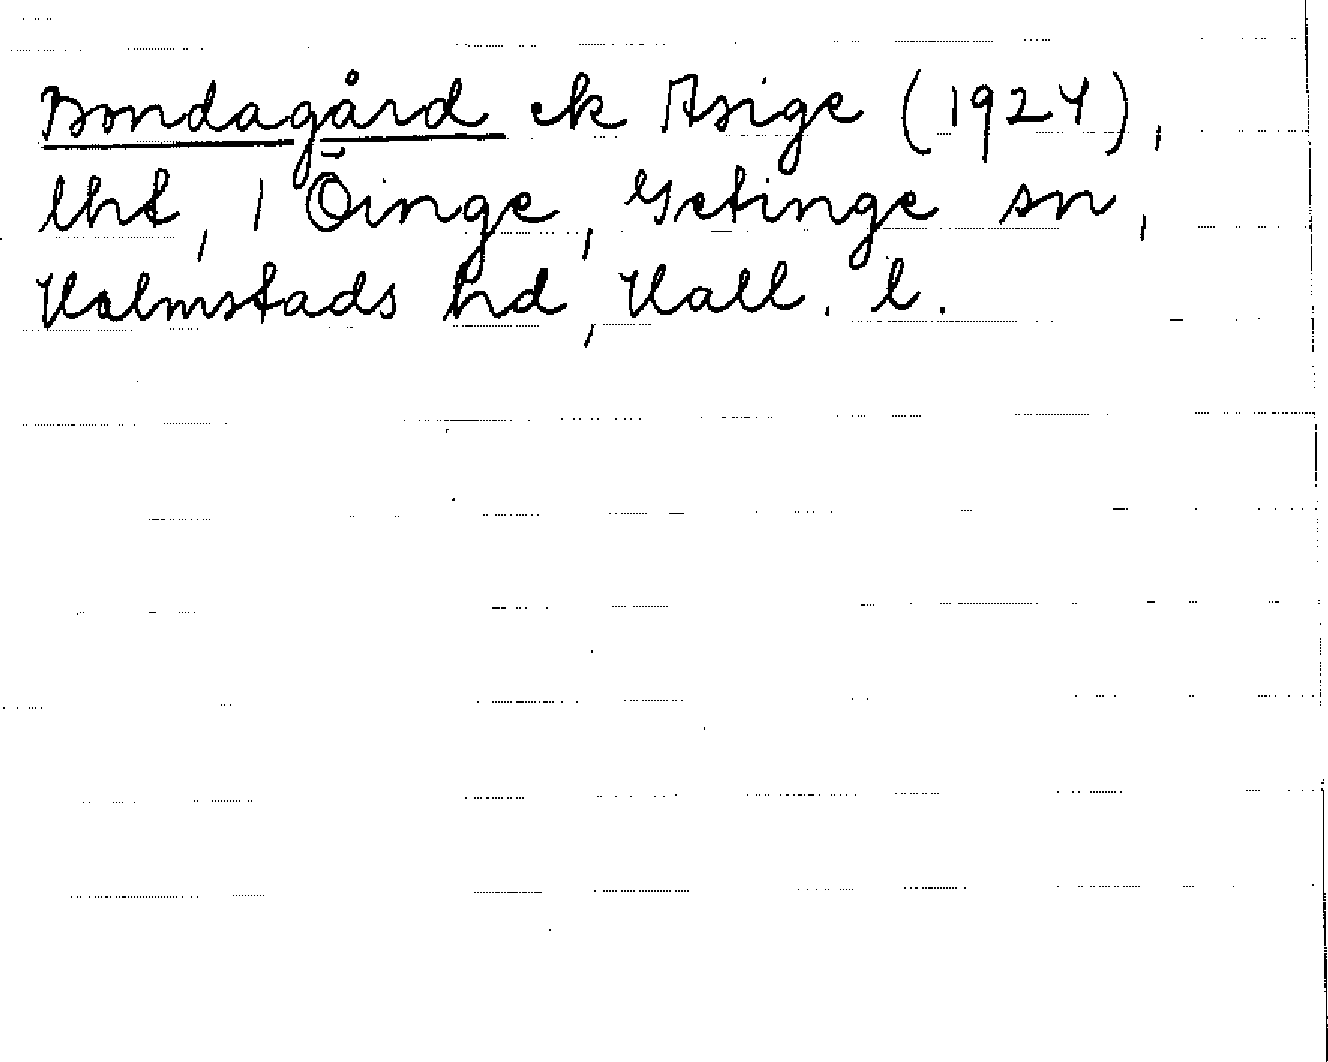 Bondagård ek Asige (1924),
lht, 1 Öinge, Getinge sn,
Halmstads hd, Hall. l.